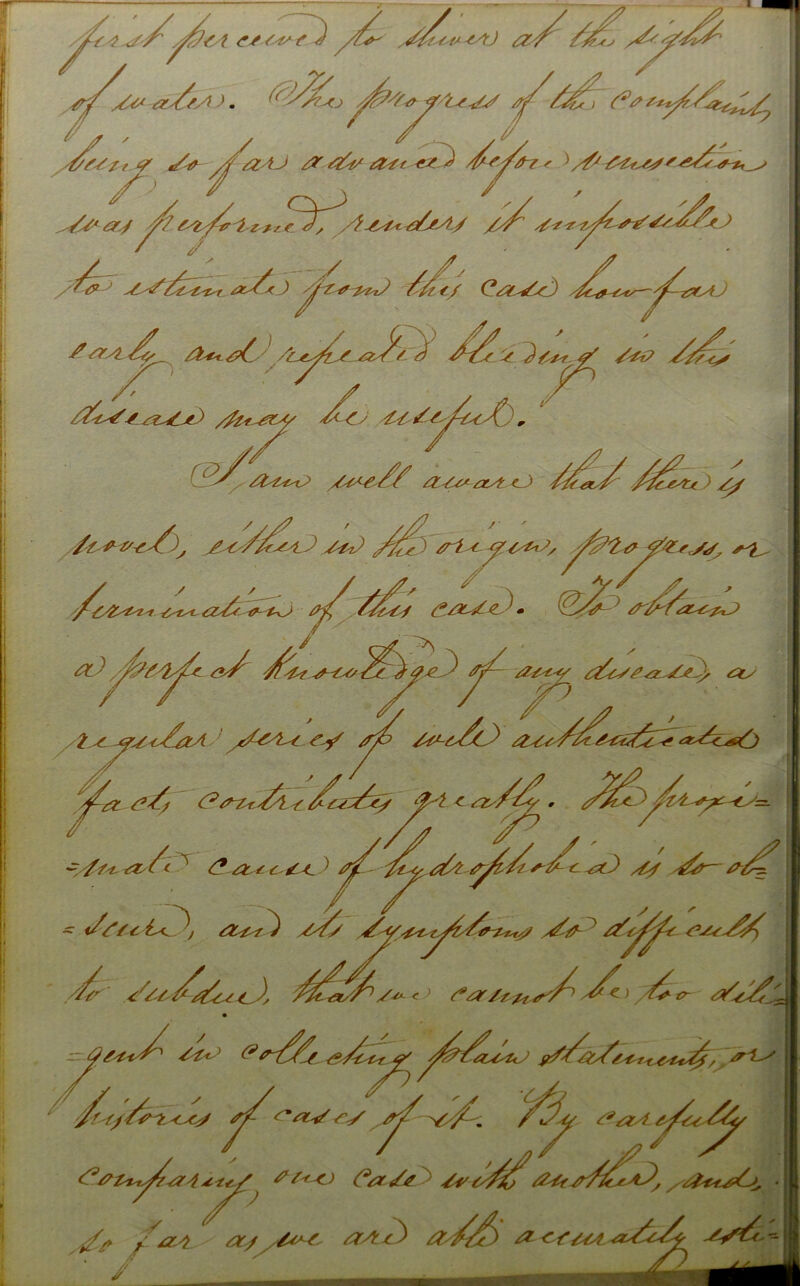 first perceived to shiver at the sight
of water. The progress of the complaint,
being so far advanced before venesection
was performed, renders it impossible
to estimate from this case how far
early and repeated bleeding in this
disease may be useful.
I am well aware that there is
novel, either in the origin, progress, or
termination of this case. To obtain
a perfect knowledge of any disease, a
regular series of well authenticated
facts contributes greatly. The proxi=
=mate cause of hydrophobia is so ob=
=scure, and its symptoms so difficult
to subdue, that we cannot be too dili=
=gent in collecting plain statements, or
histories of cases of it. By carefully
comparing one case with another, and,
so far as we are able accurately esti=